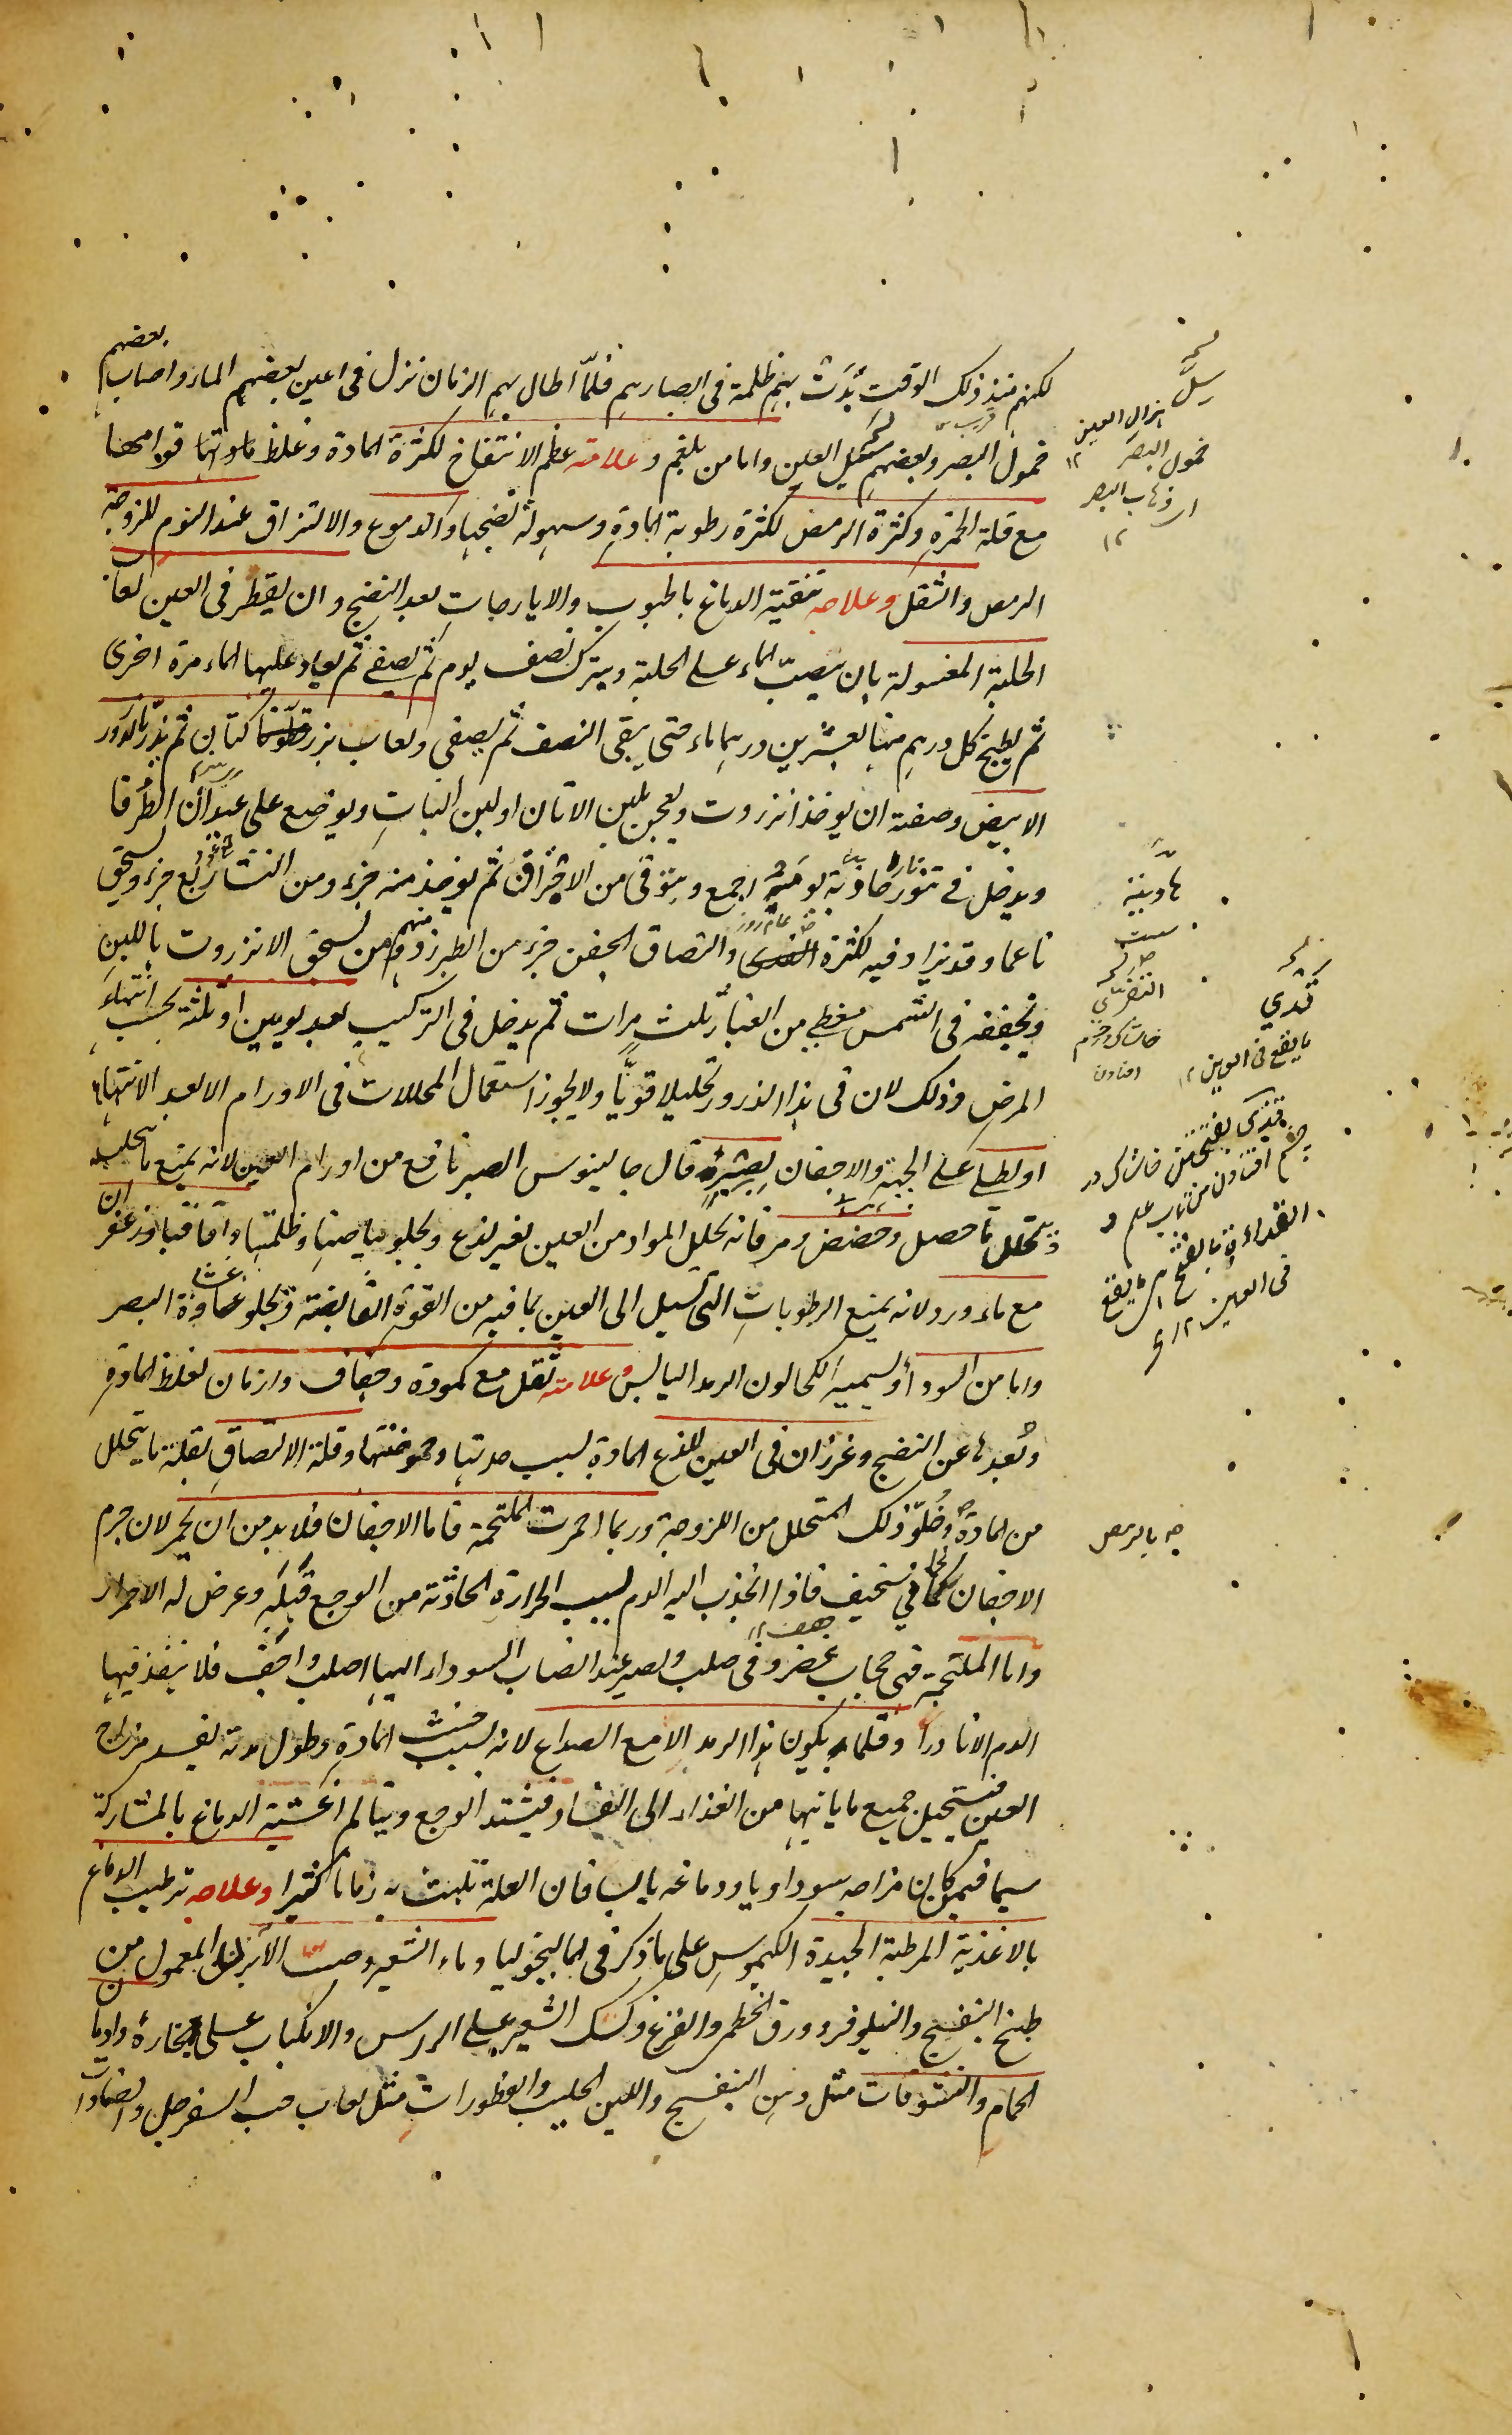 لكنهم منذ ذلك الوقت بدت بهم ظلمة فى ابصارهم فلمّا طال بهم الزمان نزل فى اعين بعضهم الماء واصاب بعضهم
خمول البصر وبعضهم سل العين واما من بلغم وعلامته عظم الانتفاخ لكثرة المادة وغلظ قوامها
مع قلة الحمرة وكثرة الرمص لكثرة رطوبة المادة وسهولة نضجها والدموع والالتزاق عند النوم للزوجة
الرمص والثقل وعلاجه تنقية الدماغ بالحبوب والايارجات بعد النضج وان يقطر فى العين لعاب
الحلبة المغسولة بان يصبّ الماء على الحلبة ويترك نصف يوم ثم يصفى ثم يعاد عليها الماء مرة اخرى
ثم يطبخ كل درهم منها بعشرين درهما ماء حتى يبقى النصف ثم يصفى ولعاب بزر كتان ثم يذرّ بالذرور
الابيض وصفته ان يوخذ انزروت ويعجن بلبن الاتان او لبن البنات ويوضع على عيدان الطرفا
ويدخل فى تنور ليلة اجمع ويتوقى من الاحتراق ثم يوخذ منه جزء ومن النشا ربع جزء ويسحق
ناعما وقد يزاد فيه لكثرة القذى والتصاق الجفن جزء من الطبرزد ومنهم من يسحق الانزروت باللبن
ويجففه فى الشمس مغطى من الغبار ثلث مرات ثم يدخل فى التركيب بعد يومين او ثلثة بحسب انتهاء
المرض وذلك لان فى هذا الذرور تحليلا قويّا ولا يجوز استعمال المحللات فى الاورام الا بعد الانتهاء
او يطلى على الجبهة والاجفان بصبر قال جالينوس الصبر نافع من اورام العين لانه يمنع ما يتحلب
ويحلل ما حصل وحضض ومر فانه يحلل المواد من العين بغير لذع ويجلو بياضها وظلمتها واقاقيا وزعفران
مع ماء ورد لانه يمنع الرطوبات التى تسيل الى العين بما فيه من القوة القابضة ويجلو غشاوة البصر
واما من السوداء ويسميه الكحالون الرمد اليابس وعلامته ثقل مع كمودة وجفاف وازمان لغلظ المادة
وبُعدها عن النضج وغرزان فى العين للذع المادة بسبب حدتها وحموضتها وقلة الالتصاق لقلة ما يتحلل
من المادة وخلوّ ذلك المتحلل من اللزوجة وربما احمرت الملتحمة فاما الاجفان فلا بد من ان يحمر لان جرم
الاجفان لحمانى سخيف فاذا انجذب اليه الدم بسبب الحرارة الحادثة من الوجع قبله وعرض له الاحمرار
واما الملتحمة فهى حجاب غضروفى صلب ويصير عند انصباب السوداء اليها اصلب واجف فلا ينفذ فيها
الدم الا نادرا وقلما يكون هذا الرمد الا مع الصداع لانه بسبب خبث المادة وطول مدته يفسد مزاج
العين فيستحيل جميع ما ياتيها من الغذاء الى الفساد فيشتد الوجع ويتالم اغشية الدماغ بالمشاركة
سيما فيمن كان مزاجه سوداويا ودماغه يابسا فان العلة تلبث به زمانا كثيرا وعلاجه ترطيب الدماغ
بالاغذية المرطبة الجيدة الكيموس على ما ذكر فى الماليخوليا وماء الشعير وصب الآبزن المعمول من
طبخ البنفسج والنيلوفر وورق الخطمى والقرع وكشك الشعير على الراس والانكباب على بخاره وادمان
الحمام والنشوقات مثل دهن البنفسج واللبن الحليب والقطورات مثل لعاب حب السفرجل والضمادات
سلّ
هزال العين
خمول البصر ١٢
اى ذهاب البصر
١٢
قذي
ما يقع فى العين ١٢
فى العين ١٢